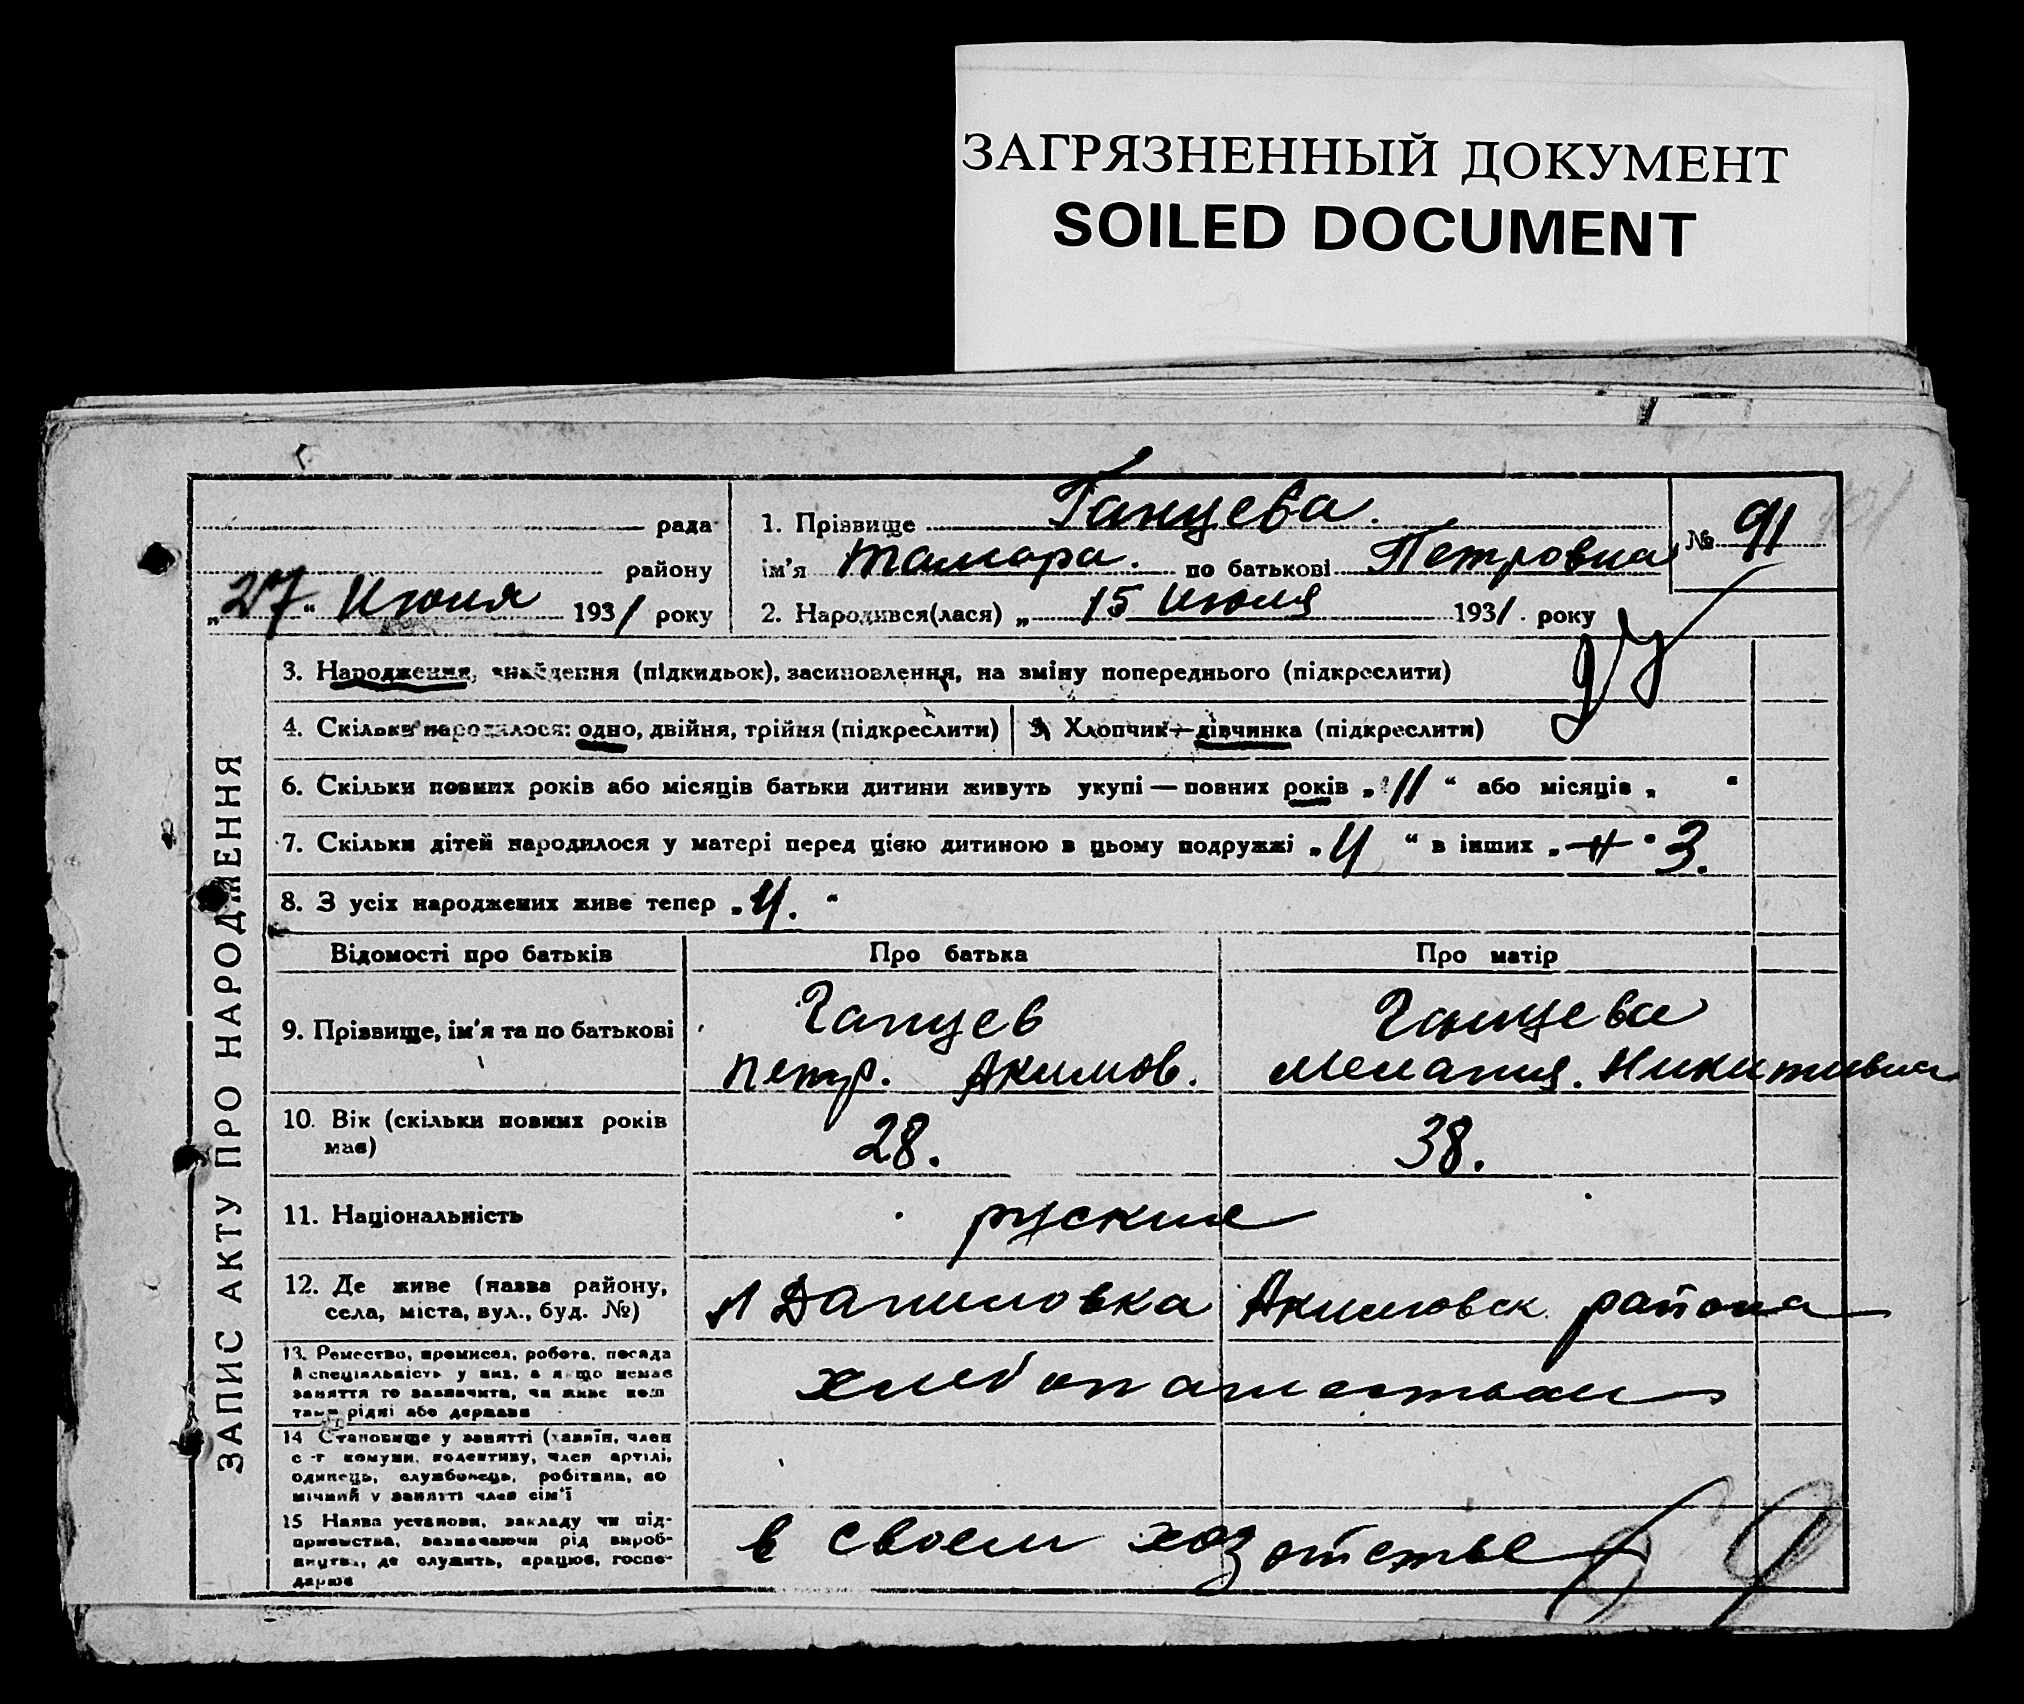 ЗАГРЯЗНЕННЫЙ ДОКУМЕНТ
SOILED DOCUMENT
рада
району
„27“ Июня 1931 року
1. Прізвище Ганцева.
ім'я Тамара. по батькові Петровна
2. Народився(лася) „15 Июня 1931. року
№ 91
ЗАПИС АКТУ ПРО НАРОДЖЕННЯ
3. Народження, знайдення (підкидьок), засиновлення, на зміну попереднього (підкреслити)
4. Скільки народилося: одно, двійня, трійня (підкреслити)
5. Хлопчик—дівчинка (підкреслити)
6. Скільки повних років або місяців батьки дитини живуть укупі — повних років „11“ або місяців „ “
7. Скільки дітей народилося у матері перед цією дитиною в цьому подружжі „4“ в інших „ 3.
8. З усіх народжених живе тепер „4.“
Відомості про батьків
Про батька
Про матір
9. Прізвище, ім'я та по батькові
Ганцев
Петр. Акимов.
Ганцева
Мелания. Никитивна
10. Вік (скільки повних років має)
28.
38.
11. Національність
руские
12. Де живе (назва району,
села, міста, вул., буд. №)
Даниловка Акимовск. района
13. Ремество, промисел, робота, посада
й спеціяльність у них, а якщо немає
заняття то зазначити, чи живе кош
тами рідні або держави
хлебопашеством
14 Становище у занятті (хазяїн, член
с-г комуни, колективу, член артілі,
одинець, службовець, робітник, по
мічний у занятті член сім'ї
15 Назва установи, закладу чи під-
приємства, зазначаючи рід вироб-
ництва, де служить, працює, госпо-
дарює
в своем хозяйстве